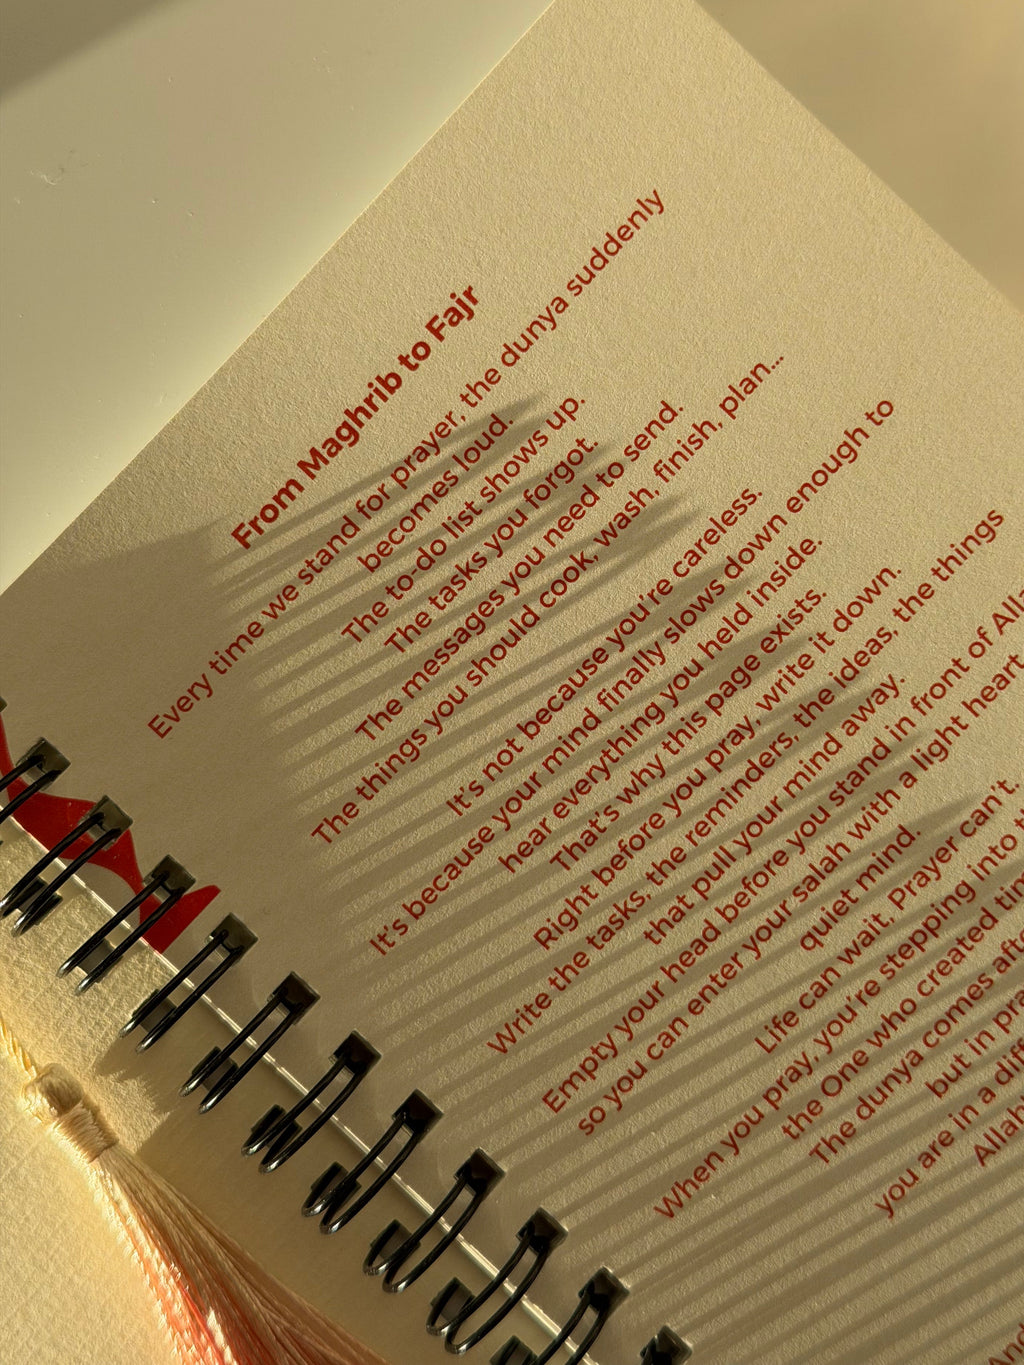 From Maghrib to Fajr
Every time we stand for prayer, the dunya suddenly
becomes loud.
The to-do list shows up.
The tasks you forgot.
The messages you need to send.
The things you should cook, wash, finish, plan...
It's not because you're careless.
It's because your mind finally slows down enough to
hear everything you held inside.
That's why this page exists.
Right before you pray, write it down.
Write the tasks, the reminders, the ideas, the things
that pull your mind away.
Empty your head before you stand in front of
so you can enter your salah with a light heart
quiet mind.
Life can wait, Prayer can't.
When you pray, you're stepping into
the One who created
The dunya comes
but in
you are in a